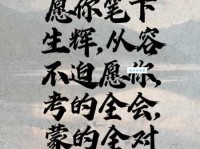 愿你笔下
生辉,从容
不迫愿你,
考的全会,
蒙的全对